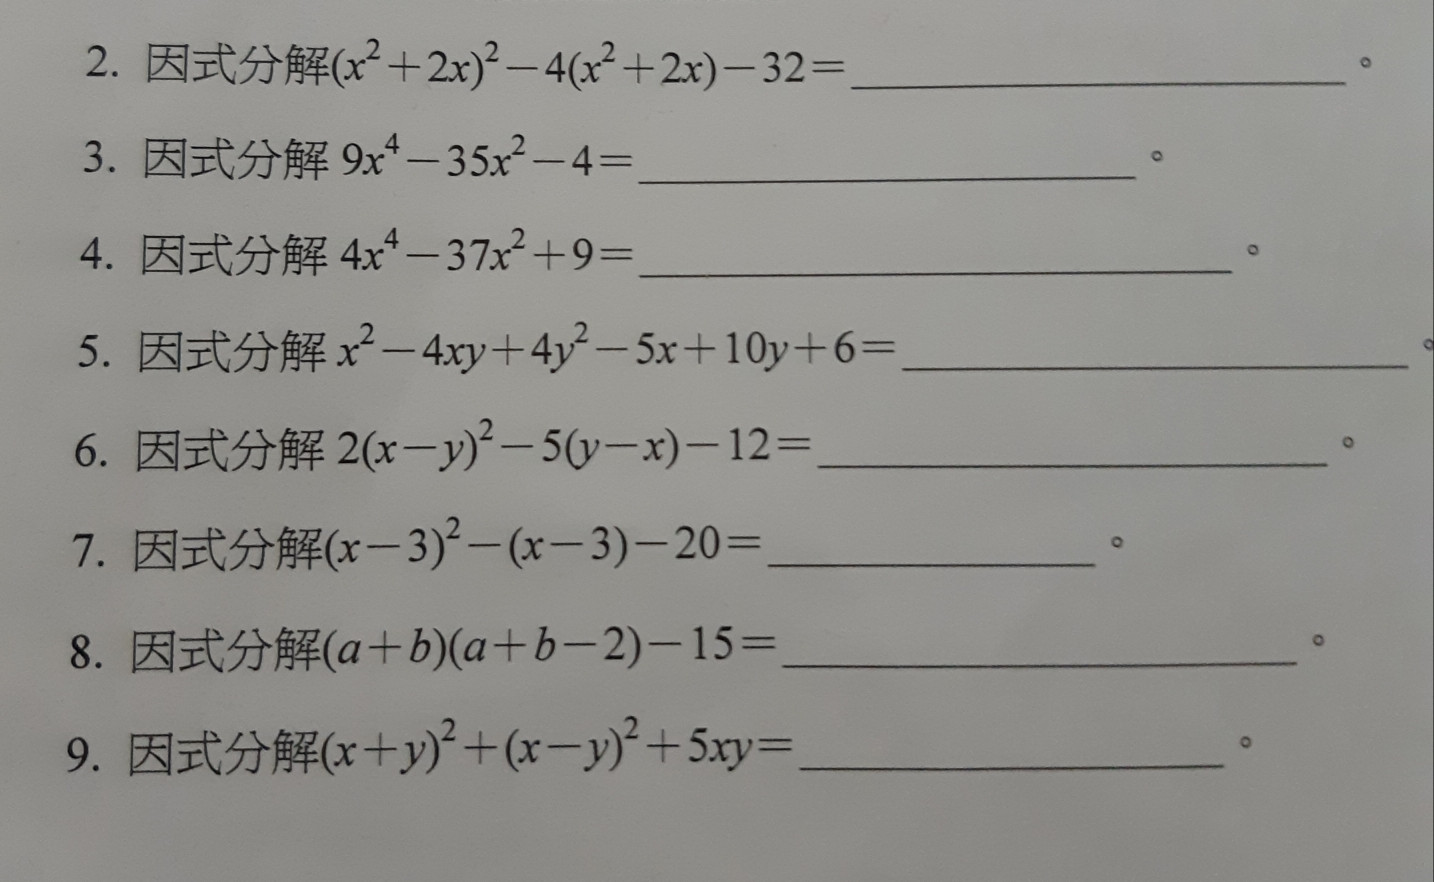 2. 因式分解(x²+2x)²-4(x²+2x)-32=__________。
3. 因式分解 9x⁴-35x²-4=__________。
4. 因式分解 4x⁴-37x²+9=__________。
5. 因式分解 x²-4xy+4y²-5x+10y+6=__________。
6. 因式分解 2(x-y)²-5(y-x)-12=__________。
7. 因式分解(x-3)²-(x-3)-20=__________。
8. 因式分解(a+b)(a+b-2)-15=__________。
9. 因式分解(x+y)²+(x-y)²+5xy=__________。